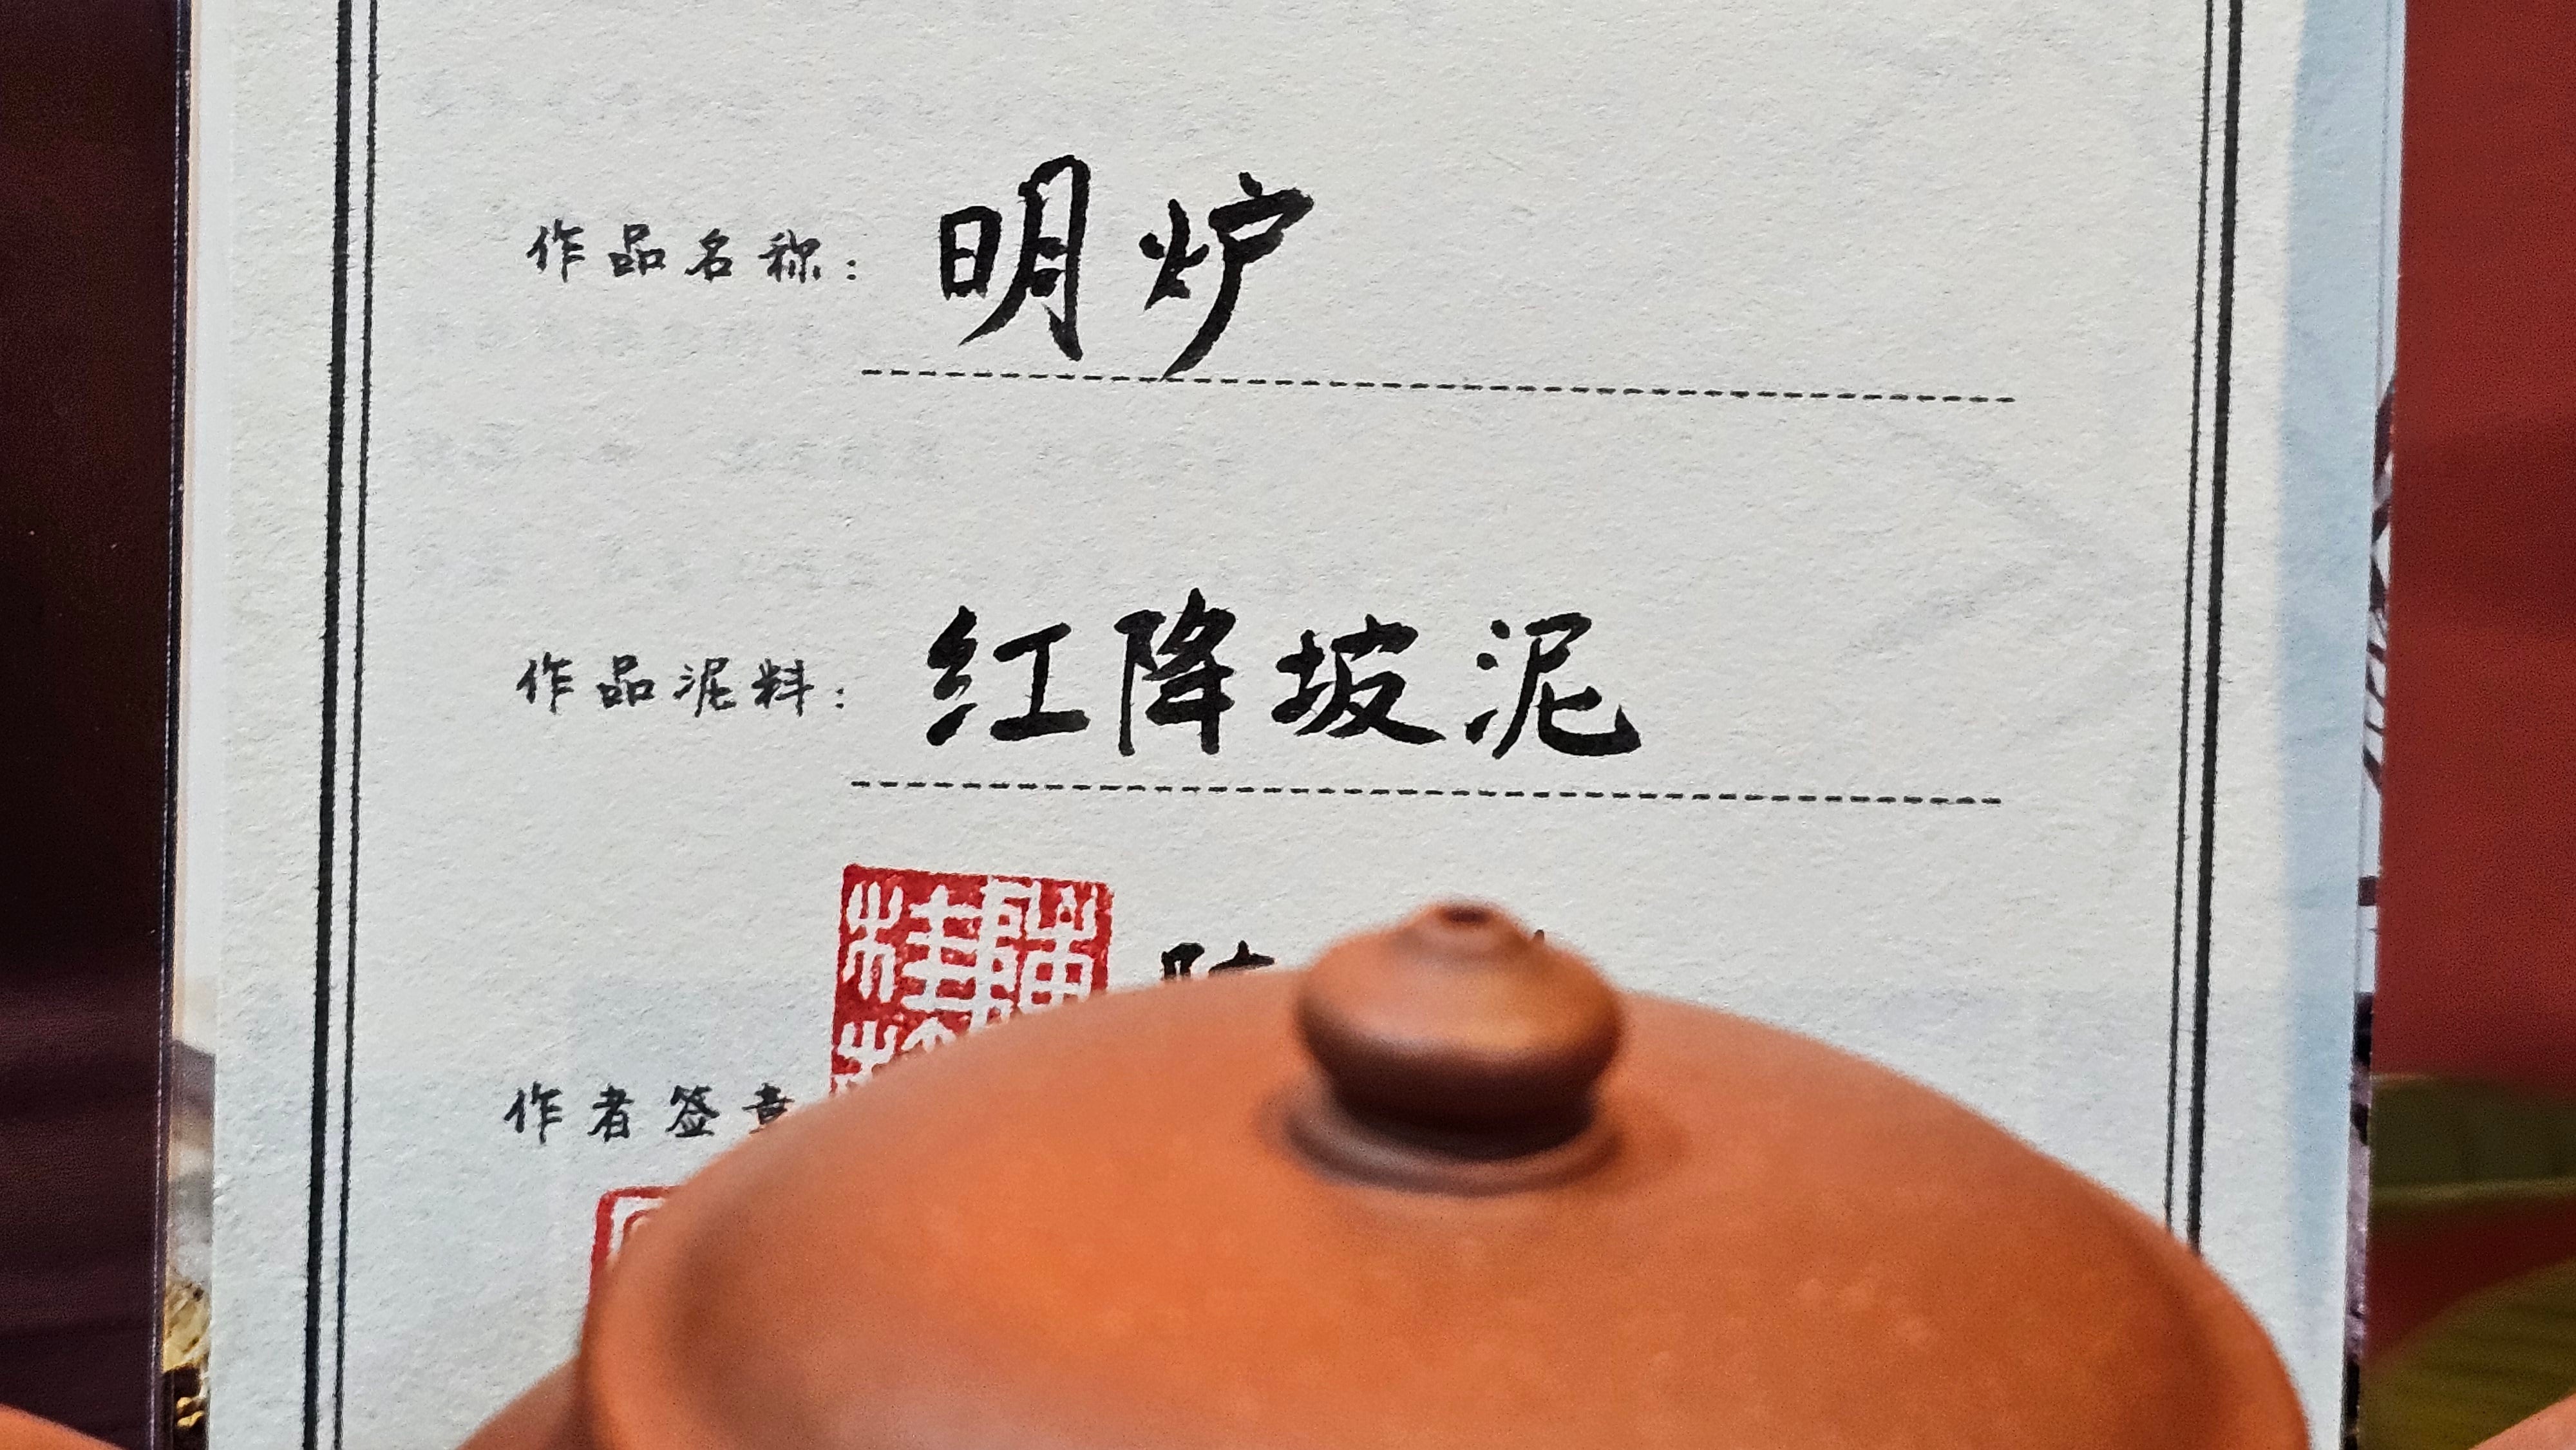 作品名称：明炉
作品泥料：红降坡泥
作者签章